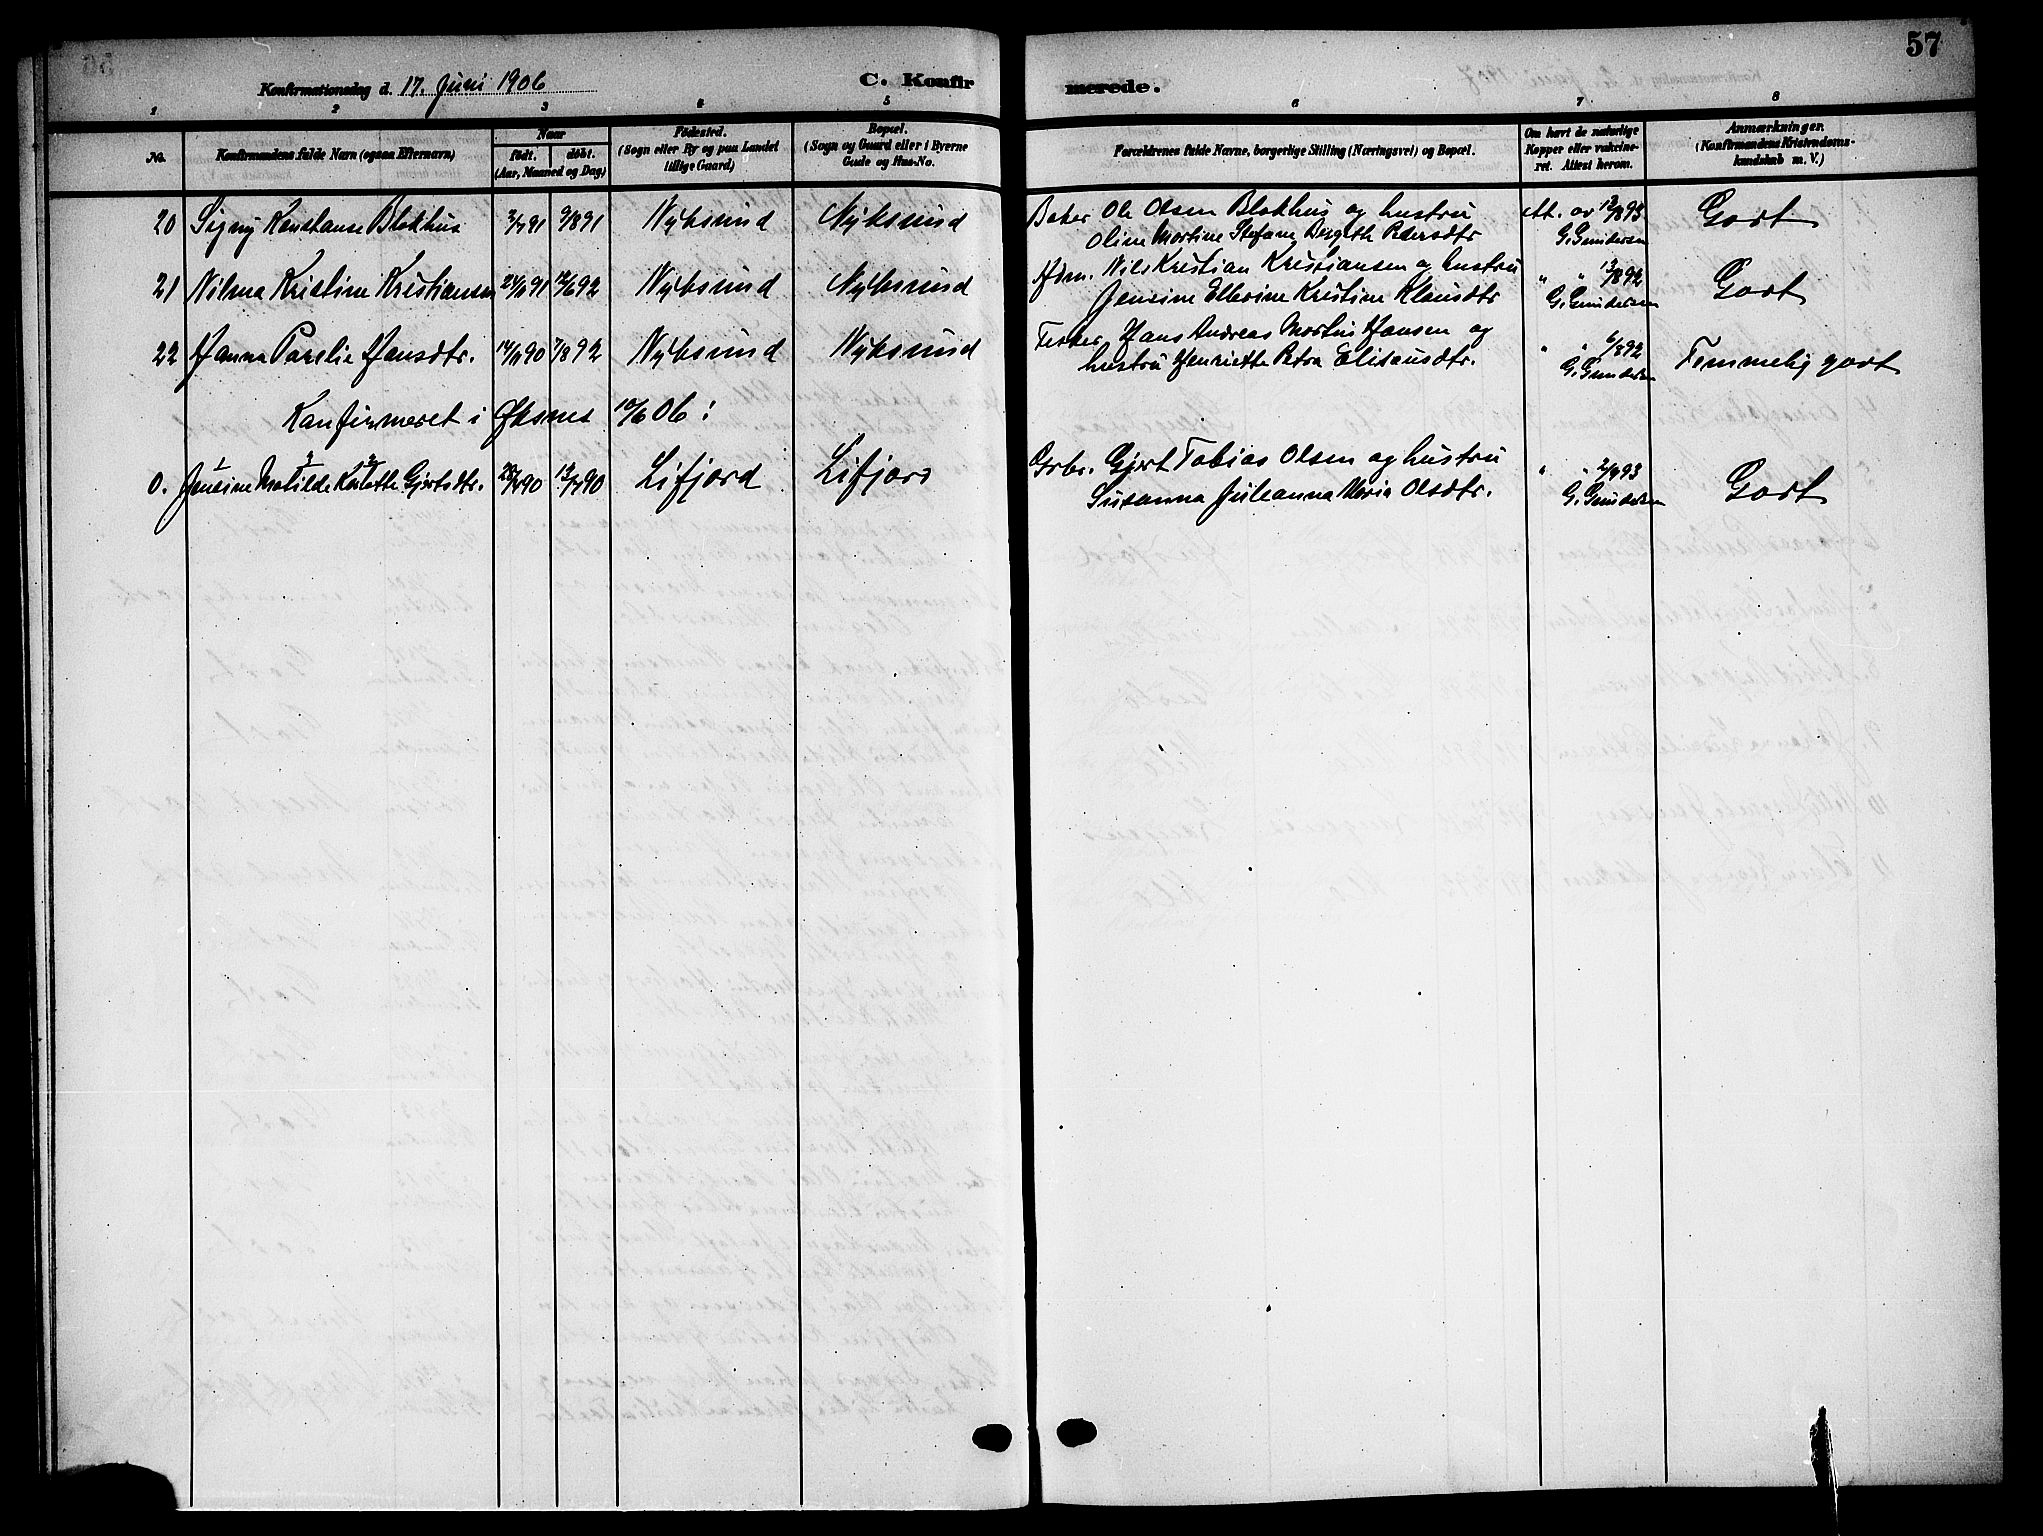 57
Konfirmationsdag d. 17. Juni 1906
C. Konfir
merede.
1 2 3 4 5 6 7 8
No.
Konfirmandens fulde Navn (ogsaa Efternavn)
Naar
født. døbt.
(Aar, Maaned og Dag)
Fødested.
(Sogn eller By og paa Landet
tillige Gaard)
Bopæl.
(Sogn og Gaard eller i Byerne
Gade og Hus-No.
Forældrenes fulde Navne, borgerlige Stilling (Næringsvei) og Bopæl.
Om havt de naturlige
Kopper eller vakcine-
ret. Attest herom.
Anmærkninger.
(Konfirmandens Kristendoms-
kundskab m. V.)
20 Signy Konstanse Blokhus 91 9/891 Nyksund Nyksund Baker Ole Olsen Blokhus og hustru Att. av 12/893 Godt
Oline Martine Stefane Bergithe Pedersdtr G. Gundersen
21 Vilma Kristine Kristiansen 91 12/692 Nyksund Nyksund Hdm. Nils Kristian Kristiansen og hustru " " 13/892 Godt
Jensine Ellerine Kristine Klausdtr G. Gundersen
22 Hanna Parelie Hansdtr. 14/1190 7/892 Nyksund Nyksund Fisker Hans Andreas Martin Hansen og " " 6/892 Temmelig godt
hustru Henriette Petra Elisausdtr. G. Gundersen
Konfirmeret i Øksnes 10/6 06:
0. Jensine Matilde Gjertsdtr. 90 90 Lifjord Lifjord Grbr. Gjert Tobias Olsen og hustru " " 893 Godt
Susanna Juleanna Maria Olsdtr. G. Gundersen